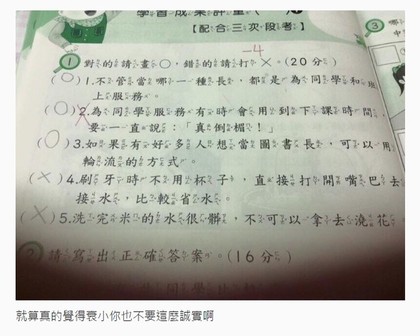 學習成果評量
【配合三次段考】
-4
1 對的請畫○，錯的請打×。(20分)
(○) 1.不管當哪一種長，都是為同學和班
上服務。
(○) 2.為同學服務有時會用到下課時間，
要一直說：「真倒楣！」
(○) 3.如果有好多人想當圖書長，可以用
輪流的方式。
(×) 4.刷牙時不用杯子，直接打開嘴巴去
接水，比較省水。
(×) 5.洗完米的水很髒，不可以拿去澆花。
2 請寫出正確答案。(16分)
就算真的覺得衰小你也不要這麼誠實啊